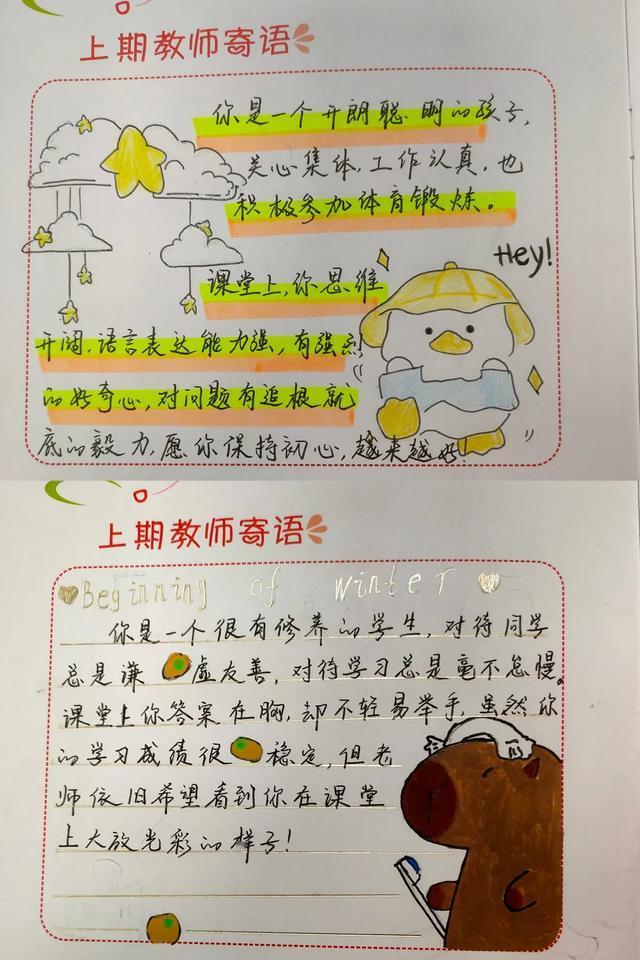 上期教师寄语
你是一个开朗聪明的孩子，
关心集体，工作认真，也
积极参加体育锻炼。
Hey!
课堂上，你思维
开阔，语言表达能力强，有强烈
的好奇心，对问题有追根就
底的毅力，愿你保持初心，越来越好！
上期教师寄语
Beginning of winter
你是一个很有修养的学生，对待同学
总是谦虚友善，对待学习总是毫不怠慢。
课堂上你答案在胸，却不轻易举手，虽然你
的学习成绩很稳定，但老
师依旧希望看到你在课堂
上大放光彩的样子！